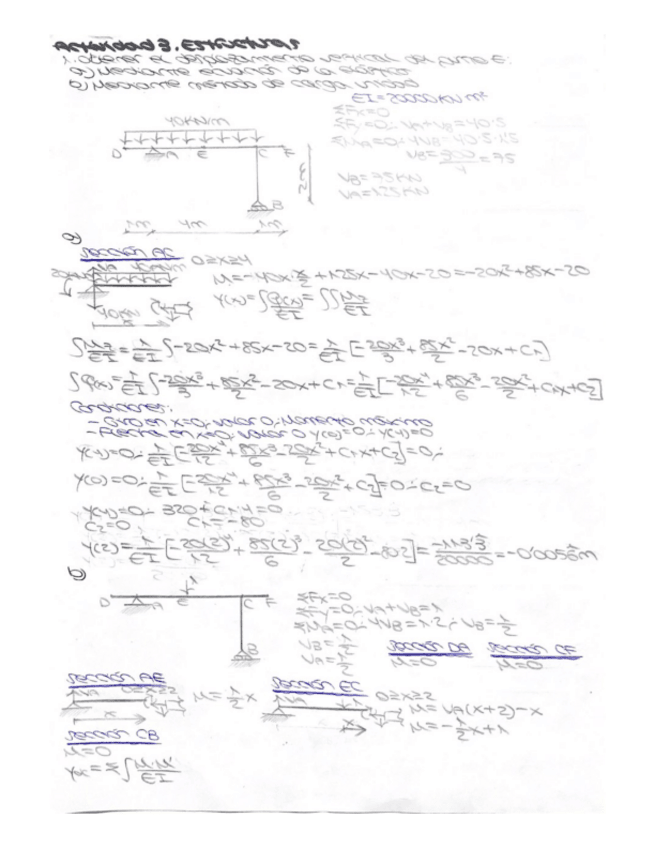 Actividad 3. Estructuras
1. Obtener el desplazamiento vertical del punto E:
a) Mediante ecuación de la elástica
b) Mediante método de carga unidad
EI=20000KN m²
ΣFx=0
ΣFy=0; VA+VB=40·5
ΣMA=0; 4VB=40·5·1'5
VB=300/4=75
VB=75KN
VA=125KN
40KN/m
D A E C F
3m
B
1m 4m 1m
a)
Sección AC
0≥x≥4
M=-40x·x/2+125x-40x-20=-20x²+85x-20
Y(x)=∫φ(x)/EI=∫∫Mz/EI
40KN
x
∫Mz/EI=1/EI∫-20x²+85x-20=1/EI[-20x³/3+85x²/2-20x+C1]
∫φ(x)=1/EI∫-20x³/3+85x²/2-20x+C1=1/EI[-20x⁴/12+85x³/6-20x²/2+C1x+C2]
Condiciones:
- Giro en x=0, valor 0, Momento máximo
- Flecha en x=0, valor 0 Y(0)=0; Y(4)=0
Y(4)=0; 1/EI[-20x⁴/12+85x³/6-20x²/2+C1x+C2]=0;
Y(0)=0; 1/EI[-20x⁴/12+85x³/6-20x²/2+C2]=0; C2=0
Y(4)=0; 320+C1·4=0
C2=0 C1=-80
Y(2)=1/EI[-20(2)⁴/12+85(2)³/6-20(2)²/2-80·2]=-113'3/20000=-0'0056m
b)
1
D A E C F
B
ΣFx=0
ΣFy=0; VA+VB=1
ΣMA=0; 4VB=1·2; VB=1/2
VB=1/2
VA=1/2
Sección DA Sección CF
M=0 M=0
Sección AE
VA 0≥x≥2
M=1/2x
x
Sección EC
VA
0≥x≥2
M=VA(x+2)-x
M=-1/2x+1
x
Sección CB
M=0
=Σ∫M·M'/EI